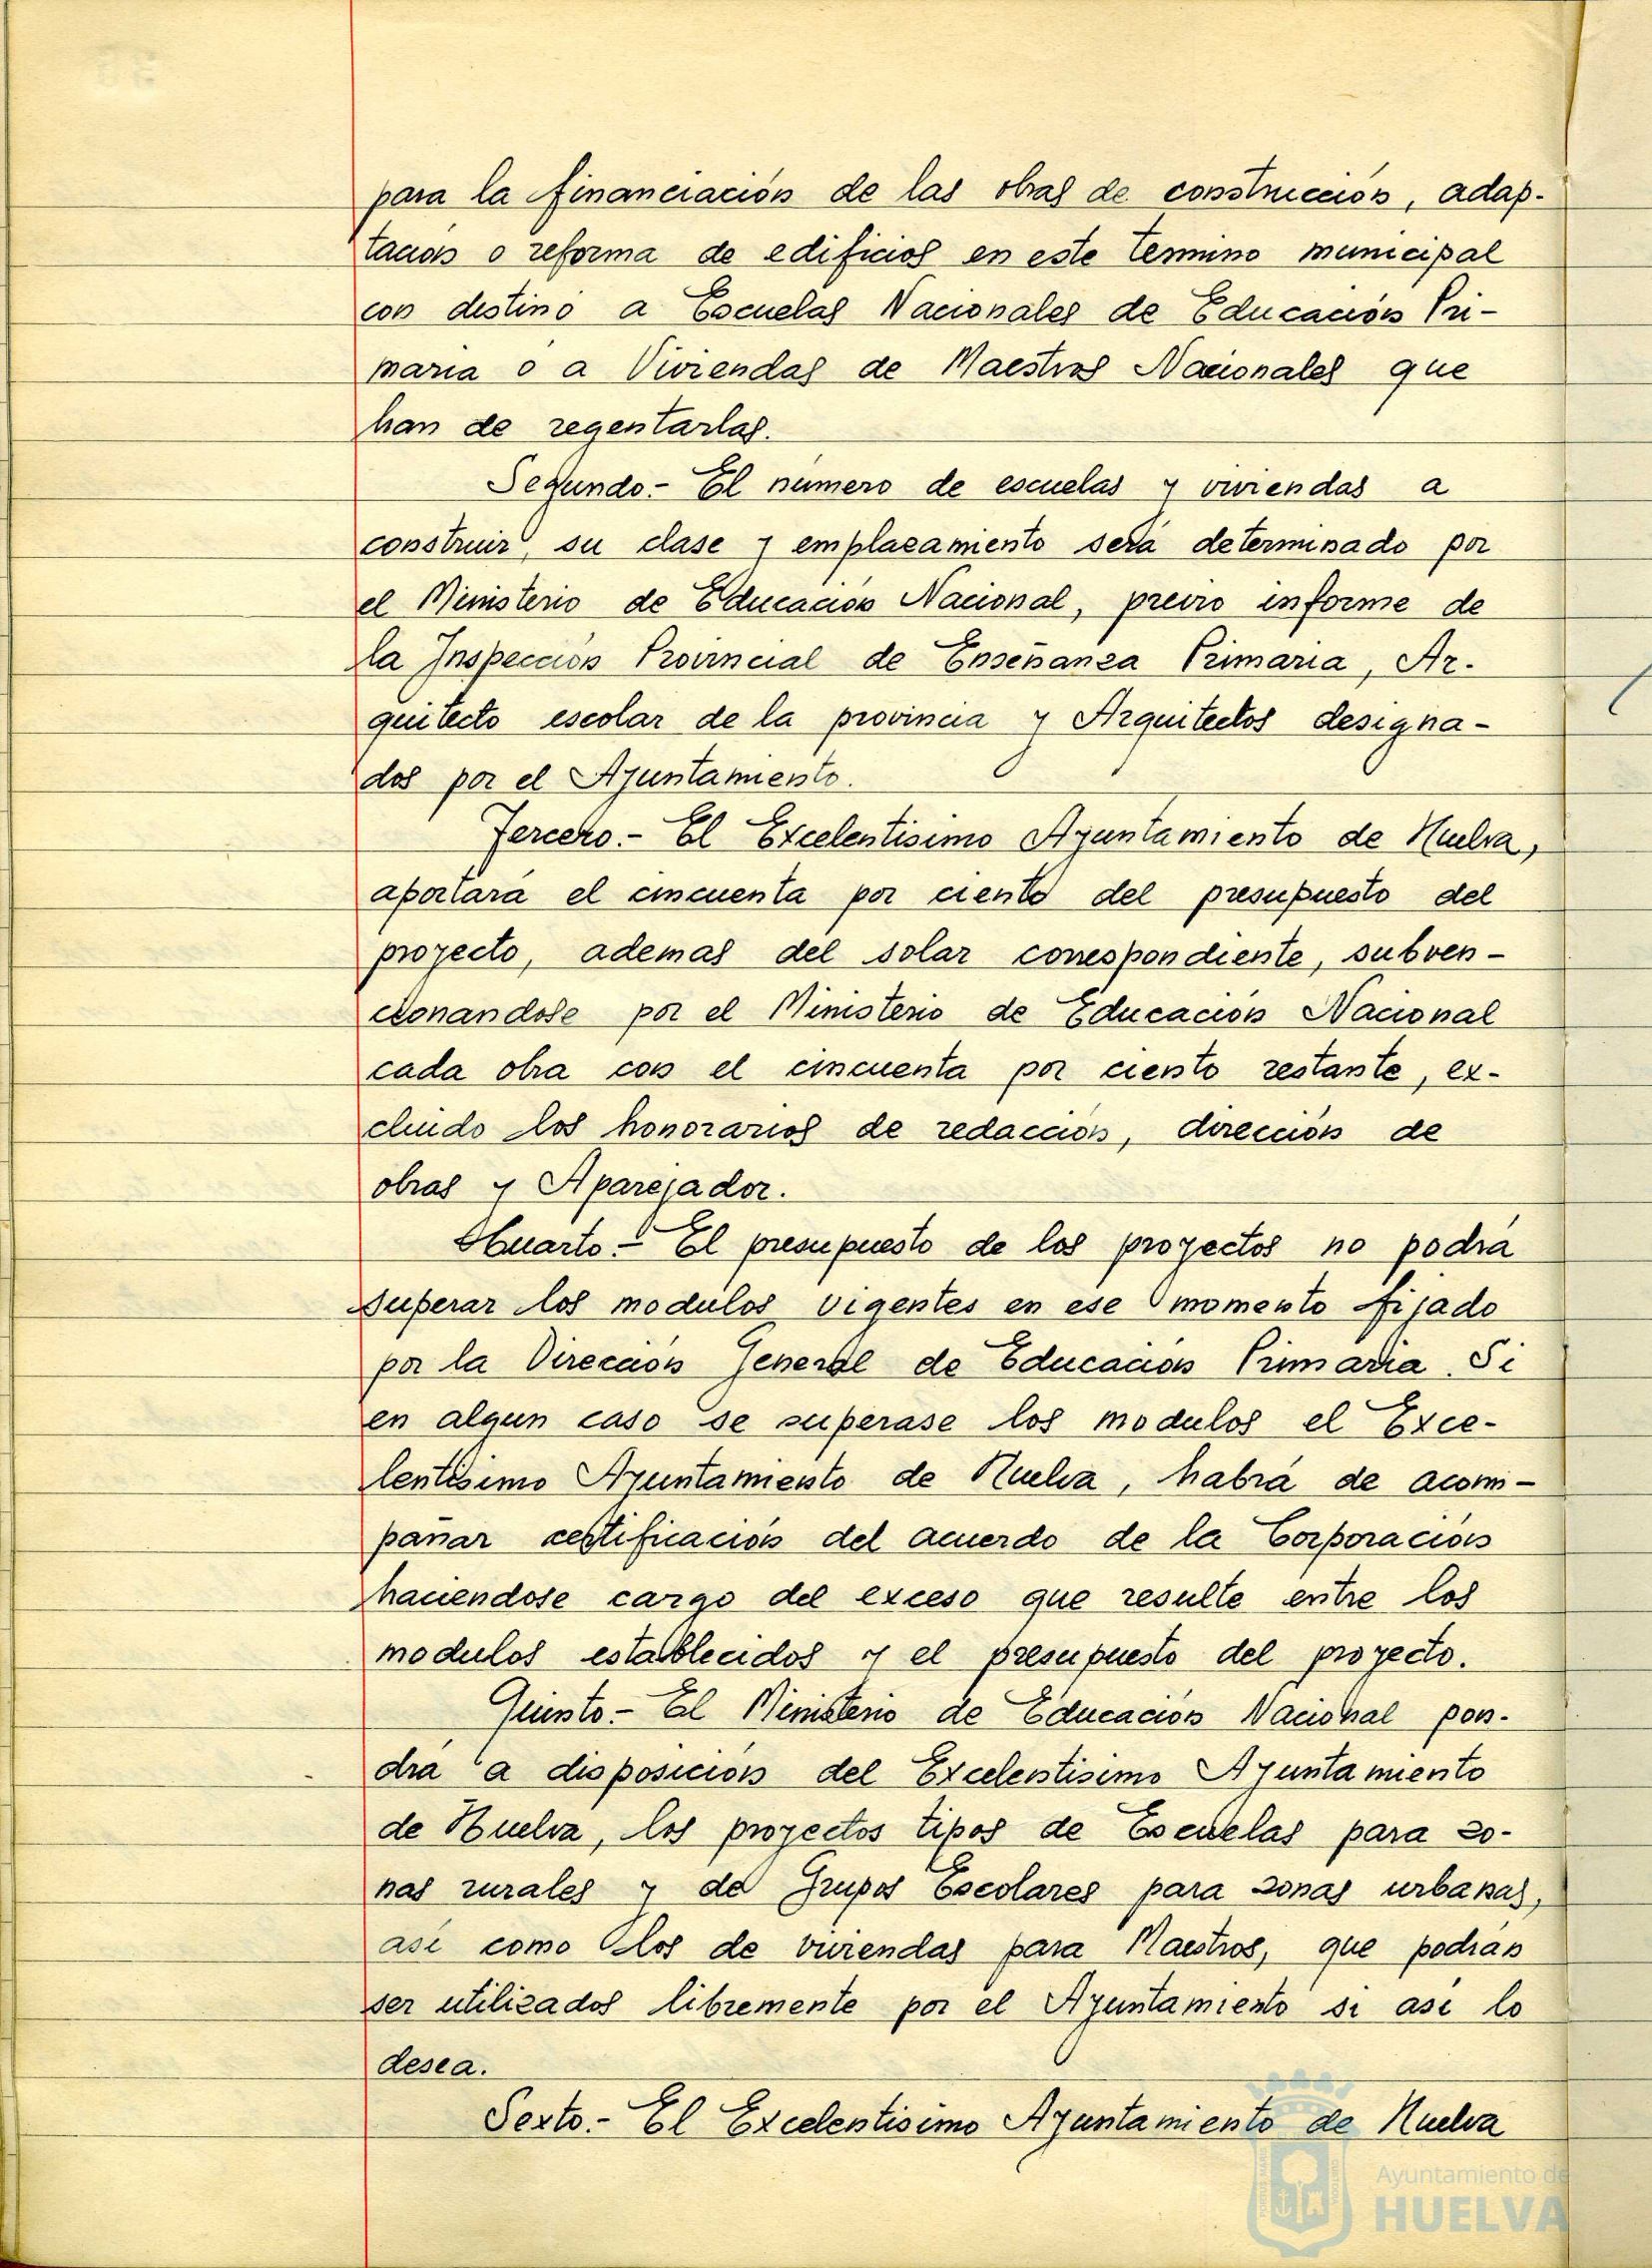 para la financiación de las obras de construcción, adap-
tación o reforma de edificios en este termino municipal
con destino a Escuelas Nacionales de Educación Pri-
maria o a Viviendas de Maestros Nacionales que
han de regentarlas.
Segundo.- El número de escuelas y viviendas a
construir, su clase y emplazamiento será determinado por
el Ministerio de Educación Nacional, previo informe de
la Inspección Provincial de Enseñanza Primaria, Ar-
quitecto escolar de la provincia y Arquitectos designa-
dos por el Ayuntamiento.
Tercero.- El Excelentisimo Ayuntamiento de Huelva,
aportará el cincuenta por ciento del presupuesto del
proyecto, ademas del solar correspondiente, subven-
cionandose por el Ministerio de Educación Nacional
cada obra con el cincuenta por ciento restante, ex-
cluido los honorarios de redacción, dirección de
obras y Aparejador.
Cuarto.- El presupuesto de los proyectos no podrá
superar los modulos vigentes en ese momento fijado
por la Dirección General de Educación Primaria. Si
en algun caso se superase los modulos el Exce-
lentisimo Ayuntamiento de Huelva, habrá de acom-
pañar certificación del acuerdo de la Corporación
haciendose cargo del exceso que resulte entre los
modulos establecidos y el presupuesto del proyecto.
Quinto.- El Ministerio de Educación Nacional pon-
drá a disposición del Excelentisimo Ayuntamiento
de Huelva, los proyectos tipos de Escuelas para zo-
nas rurales y de Grupos Escolares para zonas urbanas,
asi como los de viviendas para Maestros, que podrán
ser utilizados libremente por el Ayuntamiento si asi lo
desea.
Sexto.- El Excelentisimo Ayuntamiento de Huelva
Ayuntamiento de
HUELVA